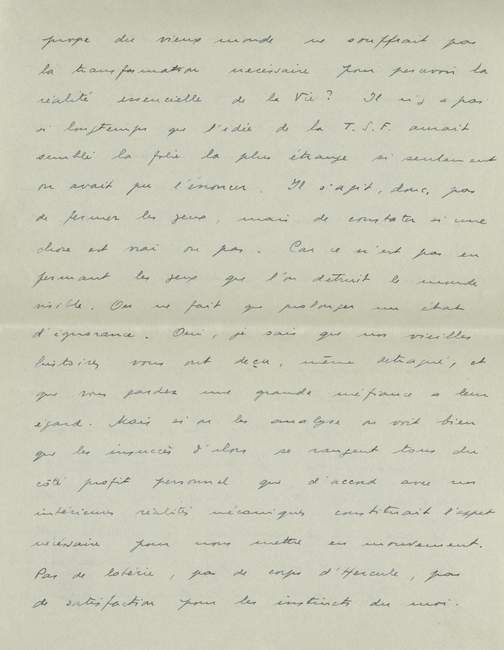 propre du vieux monde ne souffrait pas
la transformation nécessaire pour percevoir la
réalité essencielle de la Vie? Il n'y a pas
si longtemps que l'idée de la T.S.F. aurait
semblé la folie la plus étrange si seulement
on avait pu l'énoncer. Il s'agit, donc, pas
de fermer les yeux, mais de constater si une
chose est vrai ou pas. Car ce n'est pas en
fermant les yeux que l'on détruit le monde
visible. On ne fait que prolonger un état
d'ignorance. Oui, je sais que nos vieilles
histoires vous ont deçu, même detraqué, et
que vous gardez une grande méfiance a leur
égard. Mais si on les analyse on voit bien
que les insuccès d'alors se rangent tous du
côté profit personnel que d'accord avec nos
intérieures réalités mécaniques constituait l'aspet
nécéssaire pour nous mettre en mouvement.
Pas de loterie, pas de corps d'Hercule, pas
de satisfaction pour les instincts du moi.